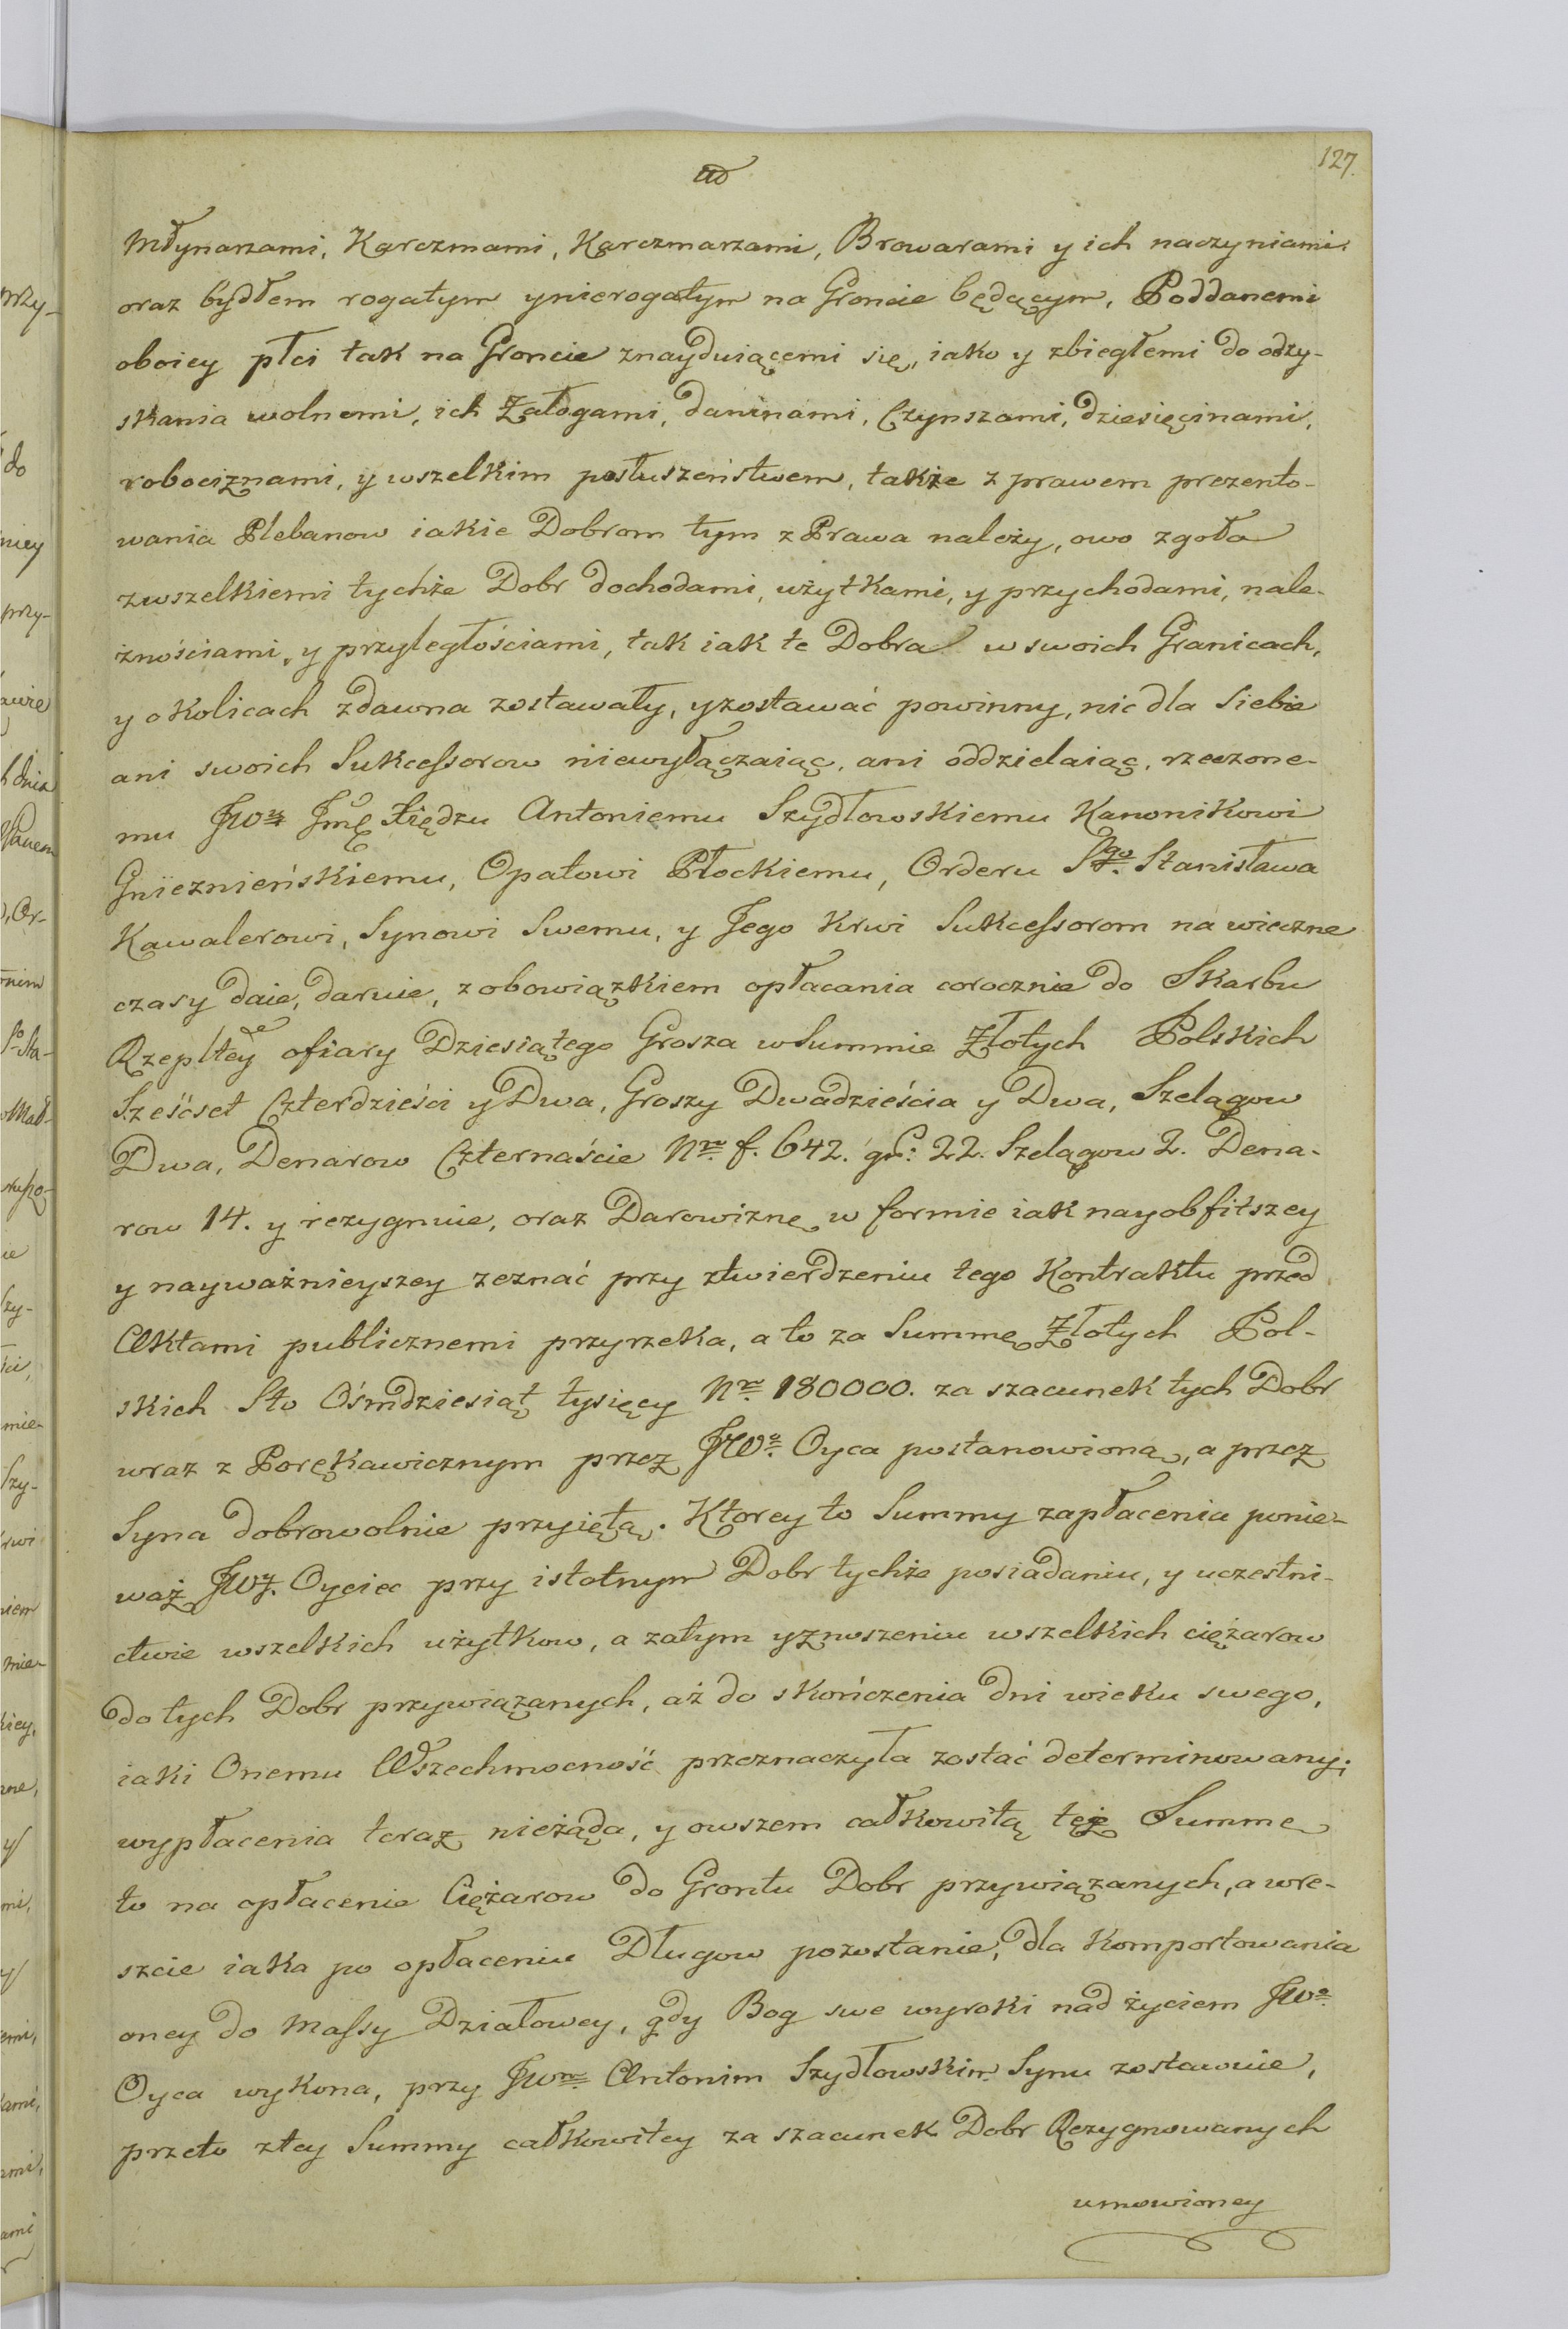 127.
Młynarzami, Karczmami, Karczmarzami, Browarami y ich naczyniami
oraz bydłem rogatym ynierogatym na Groncie będącym, Poddanemi
oboiey płci tak na Groncie znayduiącemi się, iako y zbiegłemi do odzy-
skania wolnemi, ich Załogami, daninami, Czynszami, dziesięcinami,
robociznami, y wszelkim posłuszeństwem, także z prawem prezento-
wania Plebanow iakie Dobrom tym z Prawa należy, owo zgoła
zwszelkiemi tychże Dobr dochodami, użytkami, y przychodami, nale-
żnościami, y przyległościami, tak iak te Dobra w swoich Granicach,
y okolicach zdawna zostawały, yzostawać powinny, nic dla Siebie
ani swoich Sukcessorow niewyłączaiąc, ani oddzielaiąc, rzeczone-
mu JWu Jmę Xiędzu Antoniemu Szydłowskiemu Kanonikowi
Gnieznieńskiemu, Opatowi Płockiemu, Orderu Sgo. Stanisława
Kawalerowi, Synowi Swemu, y Jego Krwi Sukcessorom na wieczne
czasy daie, daruie, z obowiązkiem opłacania corocznie do Skarbu
Rzepltey ofiary Dziesiątego Grosza wSummie Złotych Polskich
Sześćset Czterdzieści y Dwa, Groszy Dwadzieścia y Dwa, Szelągow
Dwa, Denarow Czternaście Nro. f. 642. gr: 22. Szelągow 2. Dena-
row 14. y rezygnuie, oraz Darowiznę w formie iak nayobfitszey
y nayważnieyszey zeznać przy ztwierdzeniu tego Kontraktu przed
Aktami publicznemi przyrzeka, a to za Summę Złotych Pol-
skich Sto Ośmdziesiąt tysięcy Nro. 180000. za szacunek tych Dobr
wraz z Porękawicznym przez JWo. Oyca postanowioną, a przez
Syna dobrowolnie przyiętą. Ktorey to Summy zapłacenia ponie-
waż JWy. Oyciec przy istotnym Dobr tychże posiadaniu, y uczestni-
ctwie wszelkich użytkow, a zatym yznoszeniu wszelkich ciężarow
do tych Dobr przywiązanych, aż do skończenia dni wieku swego,
iaki Onemu Wszechmocność przeznaczyła zostać determinowany;
wypłacenia teraz nieżąda, y owszem całkowitą tęż Summę
to na opłacenie Ciężarow do Grontu Dobr przywiązanych, a wre-
szcie iaka po opłaceniu Długow pozostanie, dla komportowania
oney do Massy Działowey, gdy Bog swe wyroki nad życiem JWo.
Oyca wykona, przy JWm. Antonim Szydłowskim Synu zostawuie,
przeto ztey Summy całkowitey za szacunek Dobr Rezygnowanych
umowioney